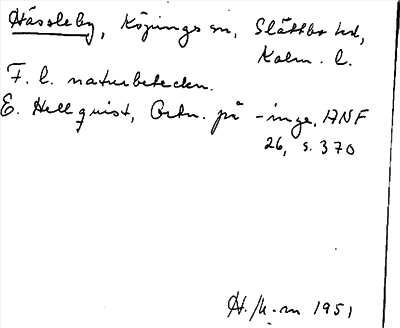 Hässleby, Köpings sn, Slättbo hd,
Kalm. l.
F. l. naturbeteckn.
E. Hellquist, Ortn. på -inge, ANF
26, s. 370
H./k-m 1951